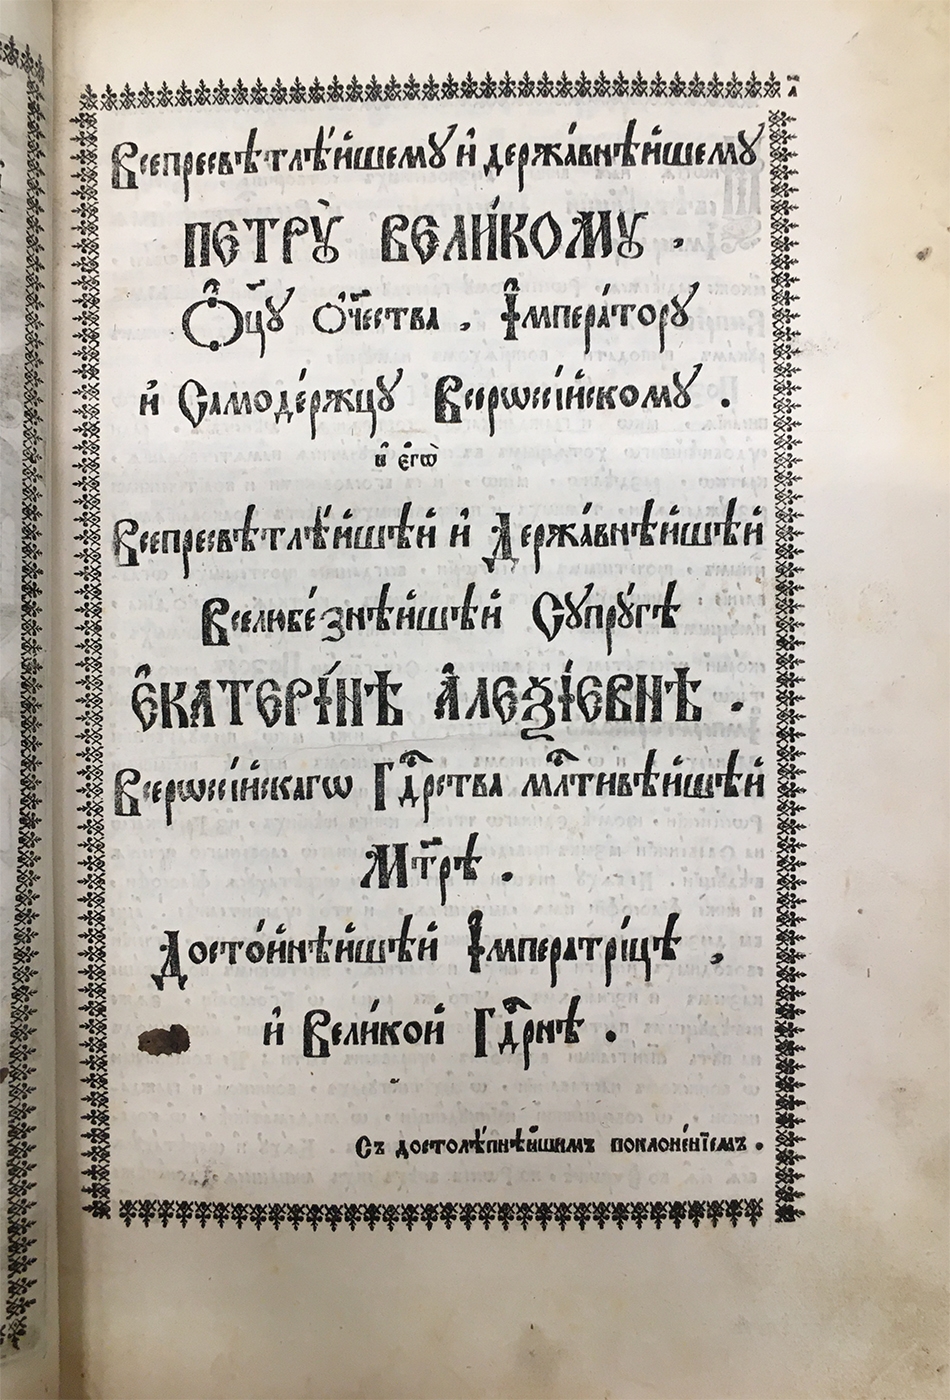 Всепресвѣтлѣ́йшемꙋ и҆ держа́внѣйшемꙋ
ПЕТРꙊ̀ ВЕЛИ́КОМꙊ .
Ѻ҆ц҃ꙋ ѻ҆ч҃ества , І҆мпера́торꙋ
и҆ Самоде́ржцꙋ Всерѡссі́йскомꙋ .
и҆ є҆гѡ̀
Всепресвѣтлѣ́йшѣй и҆ Держа́внѣйшѣй
Вселюбе́знѣйшѣй Сꙋпрꙋ́гѣ
Е҆КАТЕРІ́НѢ А҆ЛЕѮІ́ЕВНѢ .
Всерѡссі́йскагѡ Гдⷭ҇рства млⷭ҇тивѣйшѣй
Мт҃рѣ .
Досто́йнѣйшѣй І҆мператрі́цѣ ,
и҆ Вели́кой Гдⷭ҇рнѣ .
Съ достолѣ́пнѣйшимъ поклоне́нїемъ .